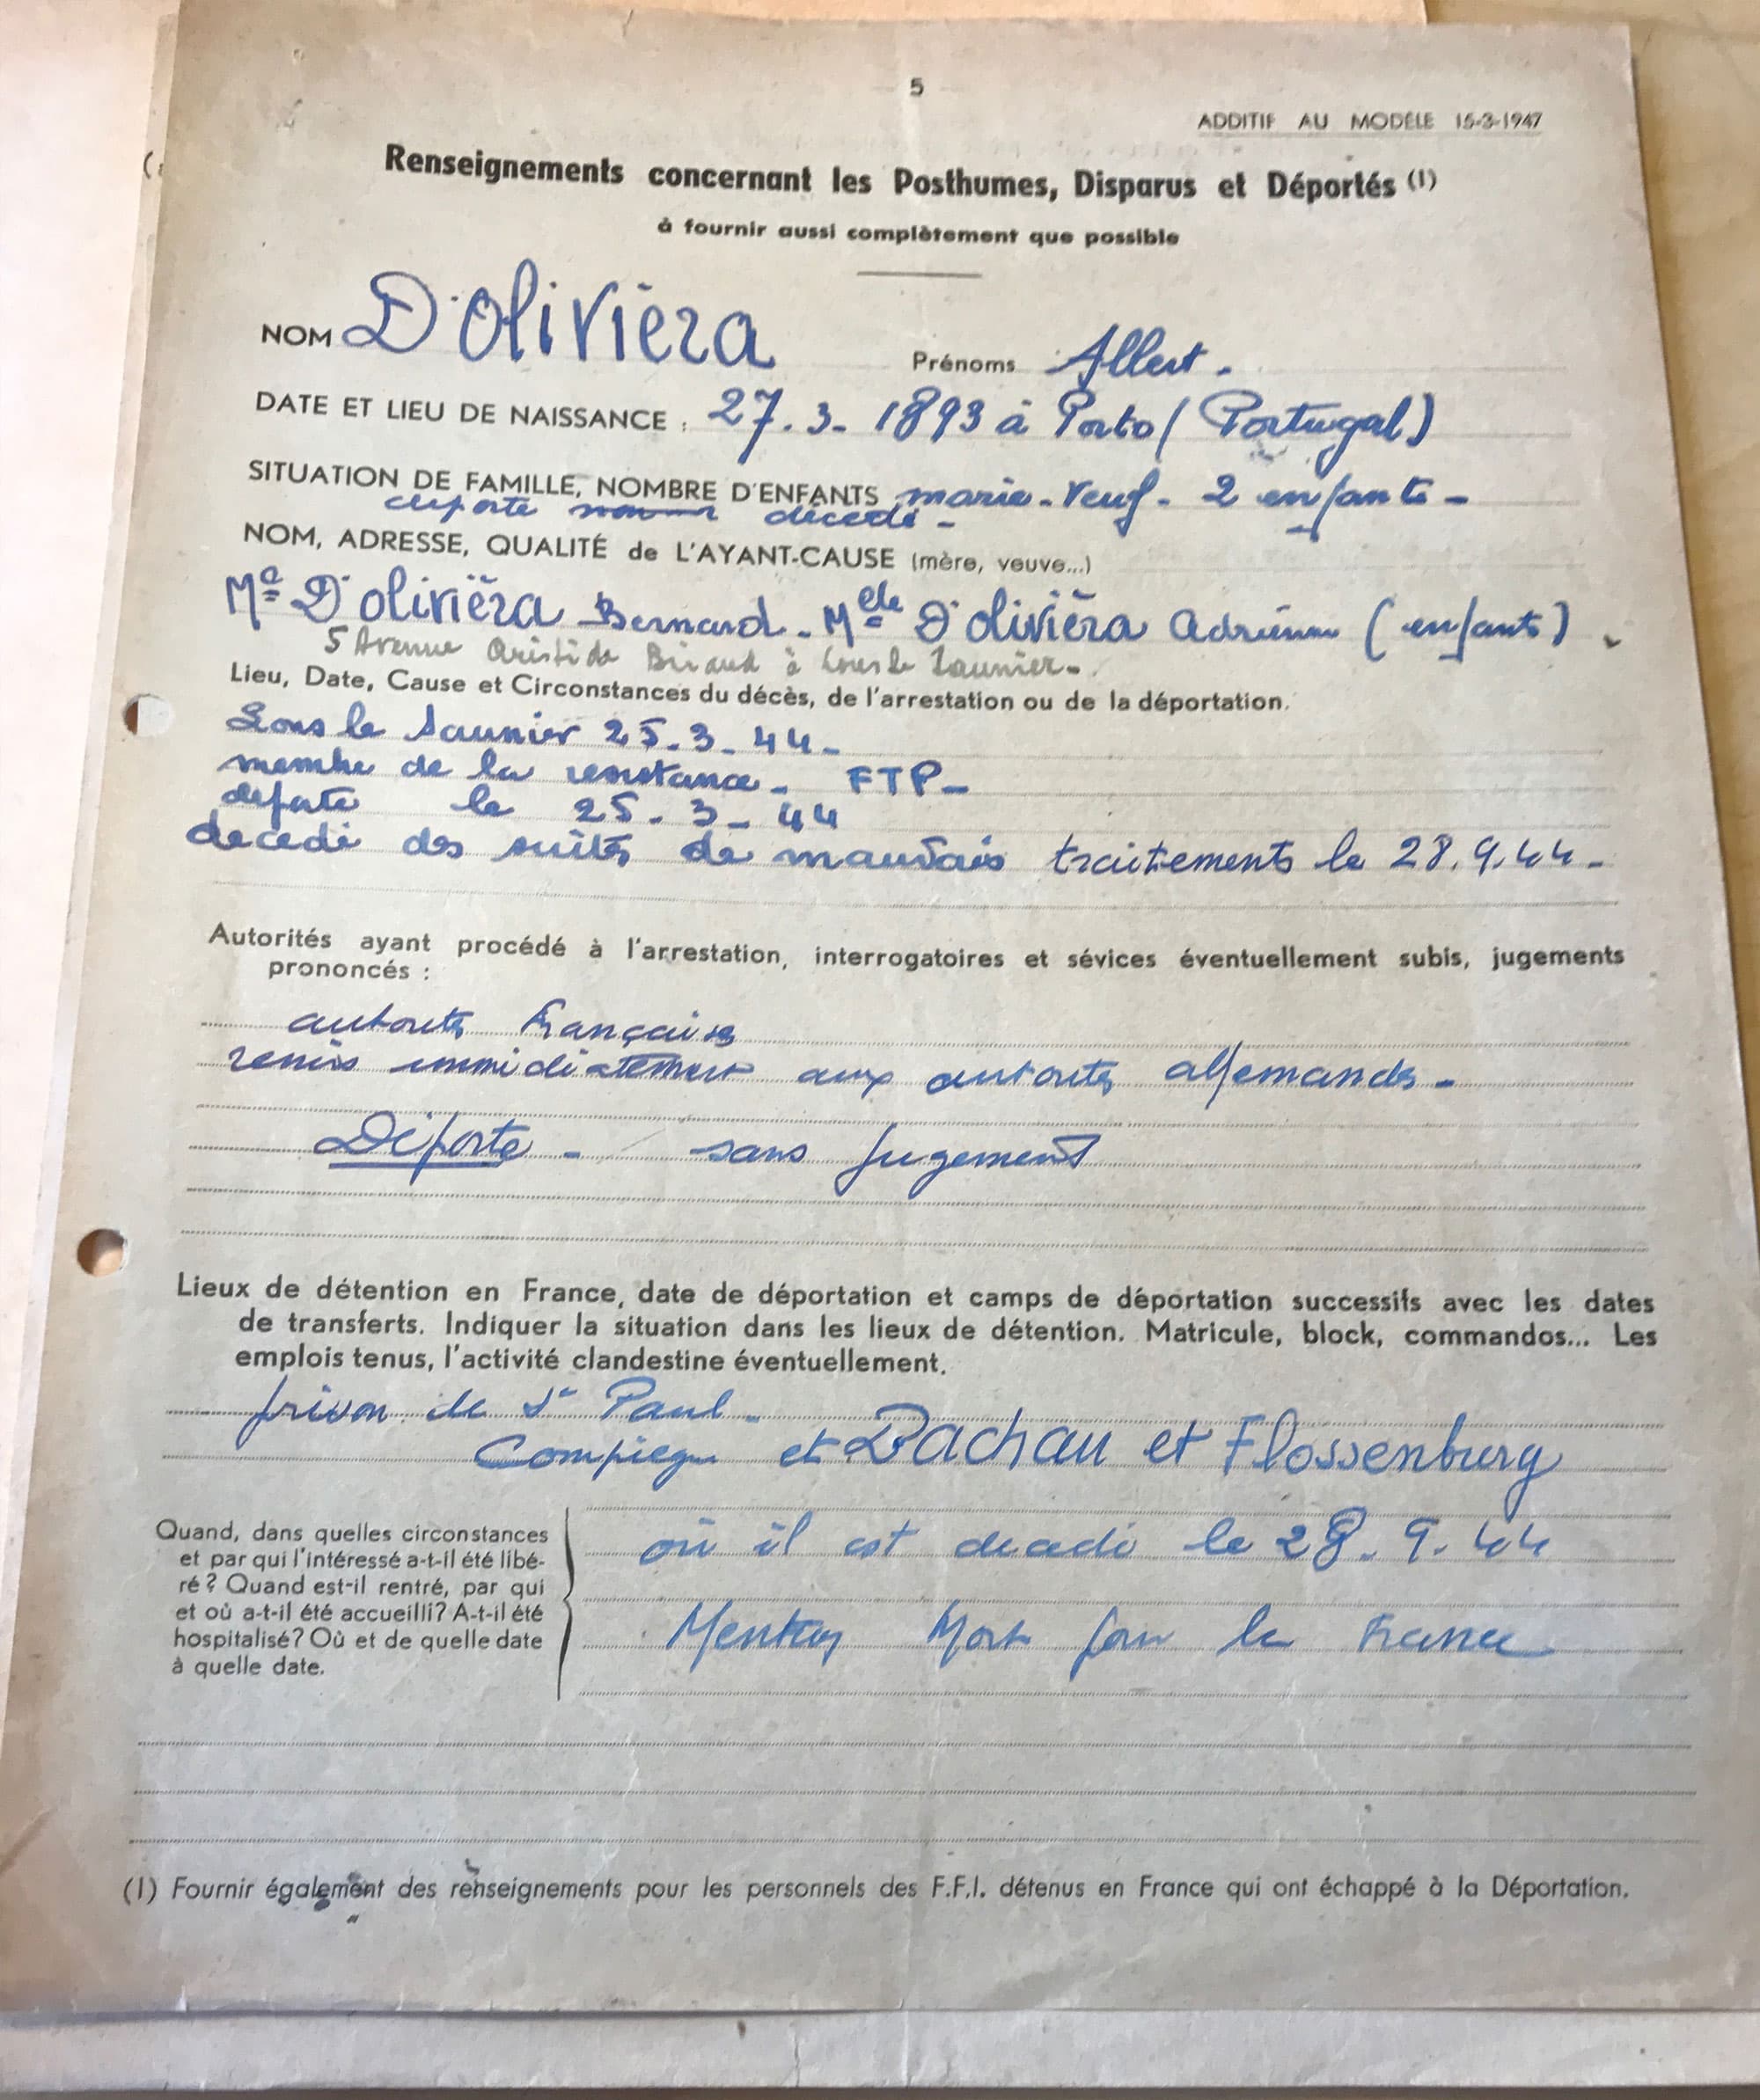 5
ADDITIF AU MODÈLE 15-3-1947
Renseignements concernant les Posthumes, Disparus et Déportés (1)
à fournir aussi complètement que possible
NOM D'Oliviera Prénoms Albert.
DATE ET LIEU DE NAISSANCE : 27.3-1893 à Porto (Portugal)
SITUATION DE FAMILLE, NOMBRE D'ENFANTS marié-veuf-2 enfants-
déporté décédé-
NOM, ADRESSE, QUALITÉ de L'AYANT-CAUSE (mère, veuve...)
D'oliviera Bernard. Melle D'oliviera Adrienne (enfants).
5 Avenue Aristide Briand à Lons le Saunier-.
Lieu, Date, Cause et Circonstances du décès, de l'arrestation ou de la déportation.
Lons le Saunier 25-3-44-
membre de la résistance- FTP-
déporté le 25-3-44
décédé des suites de mauvais traitements le 28.9.44-
Autorités ayant procédé à l'arrestation, interrogatoires et sévices éventuellement subis, jugements
prononcés :
autorités françaises
remis immédiatement aux autorités allemandes-
Déporté - sans jugement
Lieux de détention en France, date de déportation et camps de déportation successifs avec les dates
de transferts. Indiquer la situation dans les lieux de détention. Matricule, block, commandos... Les
emplois tenus, l'activité clandestine éventuellement.
prison de St Paul-
Compiègne et Dachau et Flossenburg
Quand, dans quelles circonstances
et par qui l'intéressé a-t-il été libé-
ré ? Quand est-il rentré, par qui
et où a-t-il été accueilli? A-t-il été
hospitalisé? Où et de quelle date
à quelle date.
où il est décédé le 28.9.44
Mention Mort pour la France
(1) Fournir également des renseignements pour les personnels des F.F.I. détenus en France qui ont échappé à la Déportation.